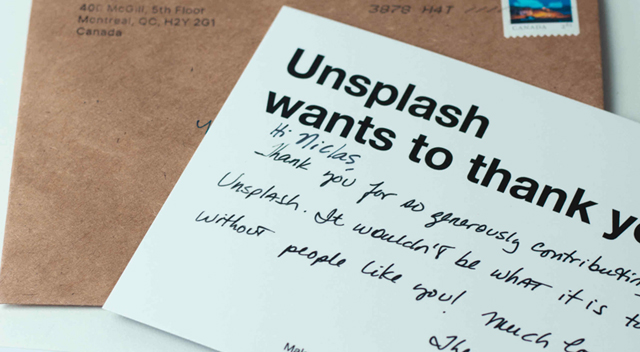 400 McGill, 5th Floor
Montreal, QC, H2Y 2G1
Canada
3878 H4T
CANADA
Unsplash
wants to thank yo
Hi Niclas,
Thank you for so generously contributing
Unsplash. It wouldn't be what it is to
without people like you! Much lo